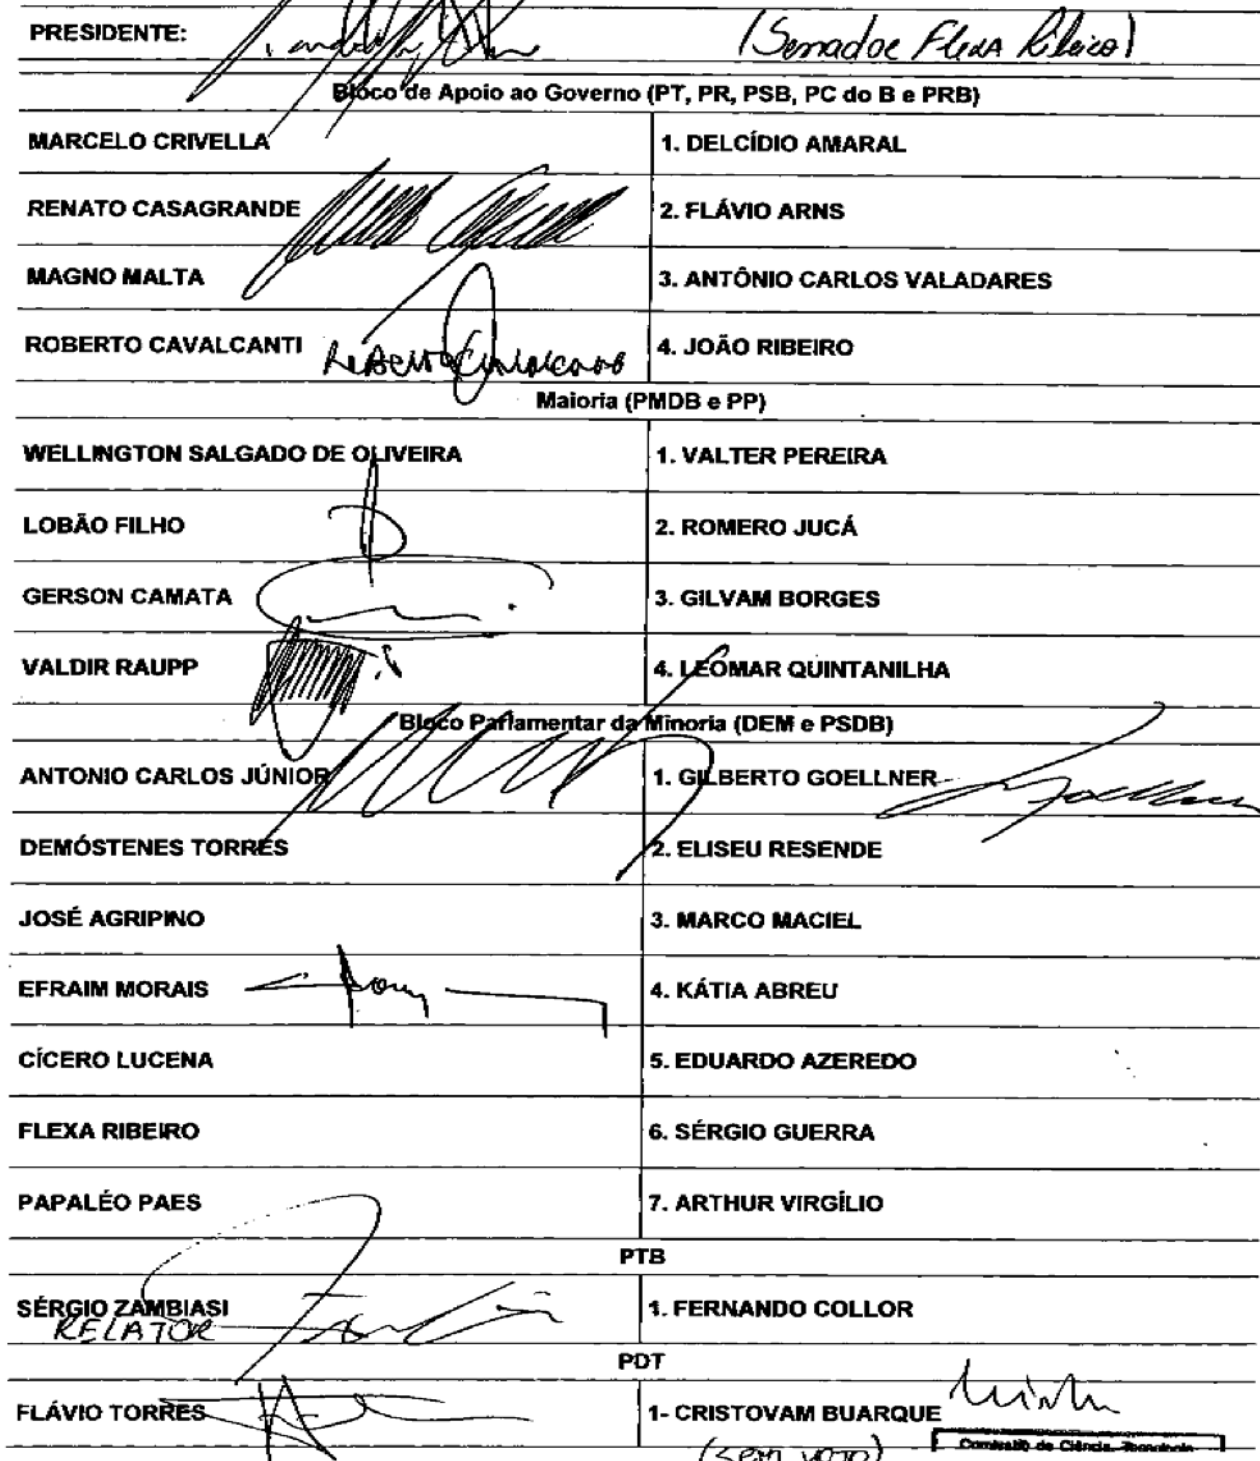 PRESIDENTE: (Senador Flexa Ribeiro)
Bloco de Apoio ao Governo (PT, PR, PSB, PC do B e PRB)
MARCELO CRIVELLA 1. DELCÍDIO AMARAL
RENATO CASAGRANDE 2. FLÁVIO ARNS
MAGNO MALTA 3. ANTÔNIO CARLOS VALADARES
ROBERTO CAVALCANTI Roberto Cavalcanti 4. JOÃO RIBEIRO
Maioria (PMDB e PP)
WELLINGTON SALGADO DE OLIVEIRA 1. VALTER PEREIRA
LOBÃO FILHO 2. ROMERO JUCÁ
GERSON CAMATA 3. GILVAM BORGES
VALDIR RAUPP 4. LEOMAR QUINTANILHA
Bloco Parlamentar da Minoria (DEM e PSDB)
ANTONIO CARLOS JÚNIOR 1. GILBERTO GOELLNER
DEMÓSTENES TORRES 2. ELISEU RESENDE
JOSÉ AGRIPINO 3. MARCO MACIEL
EFRAIM MORAIS 4. KÁTIA ABREU
CÍCERO LUCENA 5. EDUARDO AZEREDO
FLEXA RIBEIRO 6. SÉRGIO GUERRA
PAPALÉO PAES 7. ARTHUR VIRGÍLIO
PTB
SÉRGIO ZAMBIASI 1. FERNANDO COLLOR
RELATOR
PDT
FLÁVIO TORRES 1- CRISTOVAM BUARQUE
(sem voto) Comissão de Ciência, Tecnologia